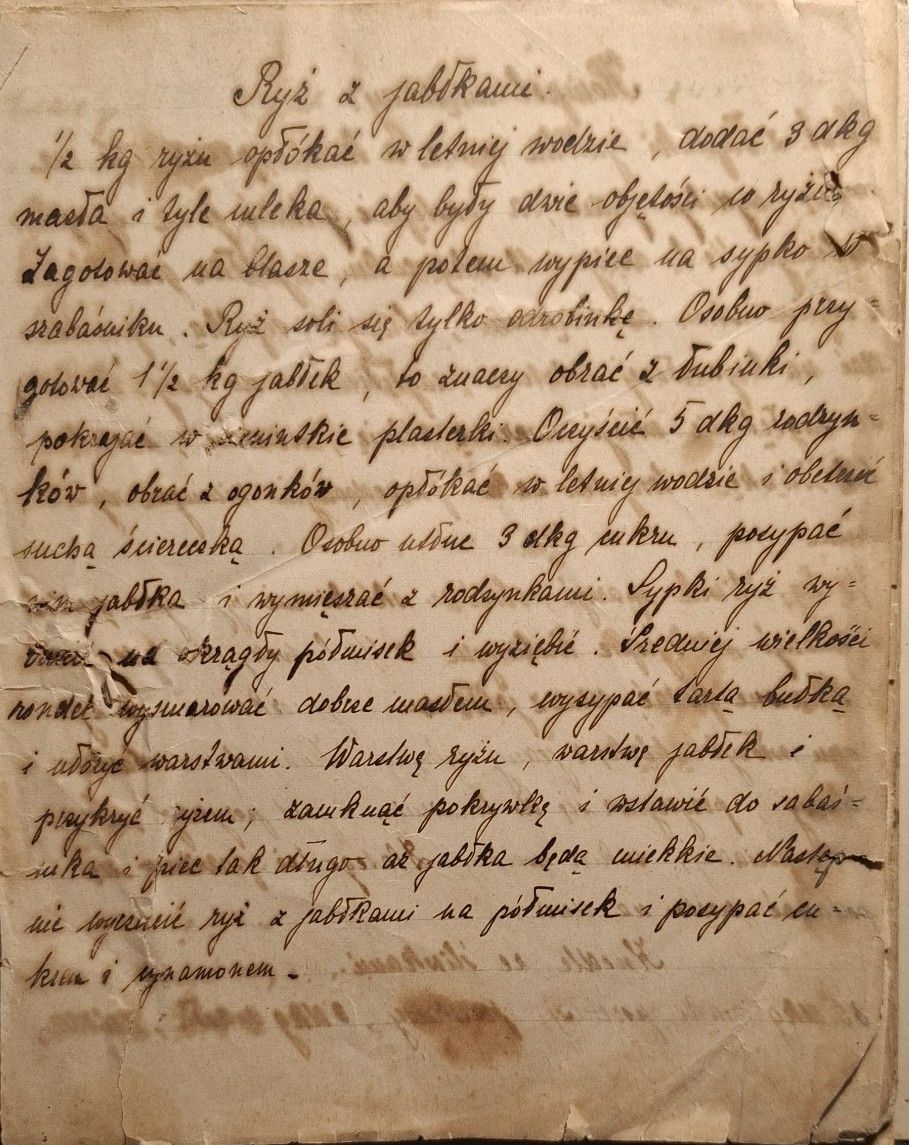 Ryż z jabłkami.
1/2 kg ryżu opłókać w letniej wodzie, dodać 3 dkg
masła i tyle mleka, aby były dwie objętości co ryżu.
Zagotować na blasze, a potem wypiec na sypko w
szabaśniku. Ryż soli się tylko odrobinkę. Osobno przy-
gotować 1 1/2 kg jabłek, to znaczy obrać z łubinki,
pokrajać w cieniutkie plasterki. Oczyścić 5 dkg rodzyn-
ków, obrać z ogonków, opłókać w letniej wodzie i obetrzeć
suchą ściereczką. Osobno utłuc 3 dkg cukru, posypać
nim jabłka i wymięszać z rodzynkami. Sypki ryż wy-
na okrągły półmisek i wyziębić. Średniej wielkości
rondel wysmarować dobrze masłem, wysypać tartą bułką
i ułożyć warstwami. Warstwę ryżu, warstwę jabłek i
przykryć ryżem; zamknąć pokrywką i wstawić do sabaś-
nika i piec tak długo aż jabłka będą miekkie. Następ-
nie wyrzucić ryż z jabłkami na półmisek i posypać cu-
krem i cynamonem.